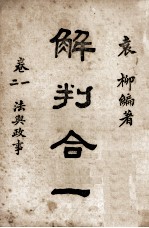 袁柳編著
解判合一
卷一二 法與政事